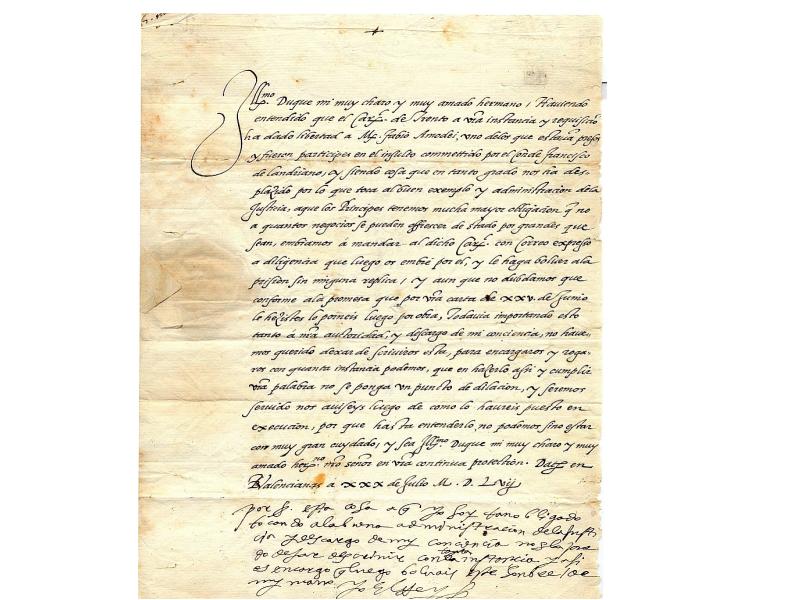 Ill.mo Duque mi muy charo y muy amado hermano, Haviendo
entendido que el Car.l de Trento a vr̃a instancia y requisiciõ
ha dado libertad a M. fabio Amodei, uno de los que estavã presos
y fueron participes en el insulto commettido por el Conde Francisco
de landriano, y siendo cosa que en tanto grado nos ha des-
plazido por lo que toca al buen exemplo y administracion de la
Justicia, a que los Principes tenemos mucha mayor obligacion q̃ no
a quantos negocios se pueden offrescer de stado por grandes que
sean, embiamos à mandar al dicho Car.l con Correo expresso
a diligencia que luego os embie por el, y le haga bolver a la
prision sin ninguna replica, y aun que no dubdamos que
conforme a la promessa que por vr̃a carta de XXV. de Junio
le hezistes lo porneis luego por obra, Todavia importando esto
tanto à nr̃a autoridad, y descargo de mi conciencia, no have-
mos querido dexar de scriviros esta, para encargaros y roga-
ros con quanta instancia podemos, que en hazerlo assi y cumplir
vr̃a palabra no se ponga un punto de dilacion, y seremos
servido nos aviseys luego de como lo havreis puesto en
execucion, por que hasta entenderlo, no podemos sino estar
con muy gran cuydado, y sea Ill.mo Duque mi muy charo y muy
amado her.no nr̃o señor en vr̃a continua protection. Dat en
Valencianas à XXX de Julio M. D. Lvij
por s. esta cosa a q̃ yo soy tan obligado
tocando a la buena administracion de la justi
cia y descargo de my conciencia no
de dexar de screvir con tanta instancia y asi
os encargo q̃ luego bolvais este honbre
my mano. Yo el Rey